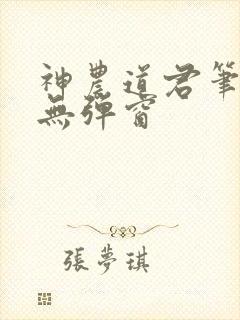 神農道君筆
無彈窗
張夢琪